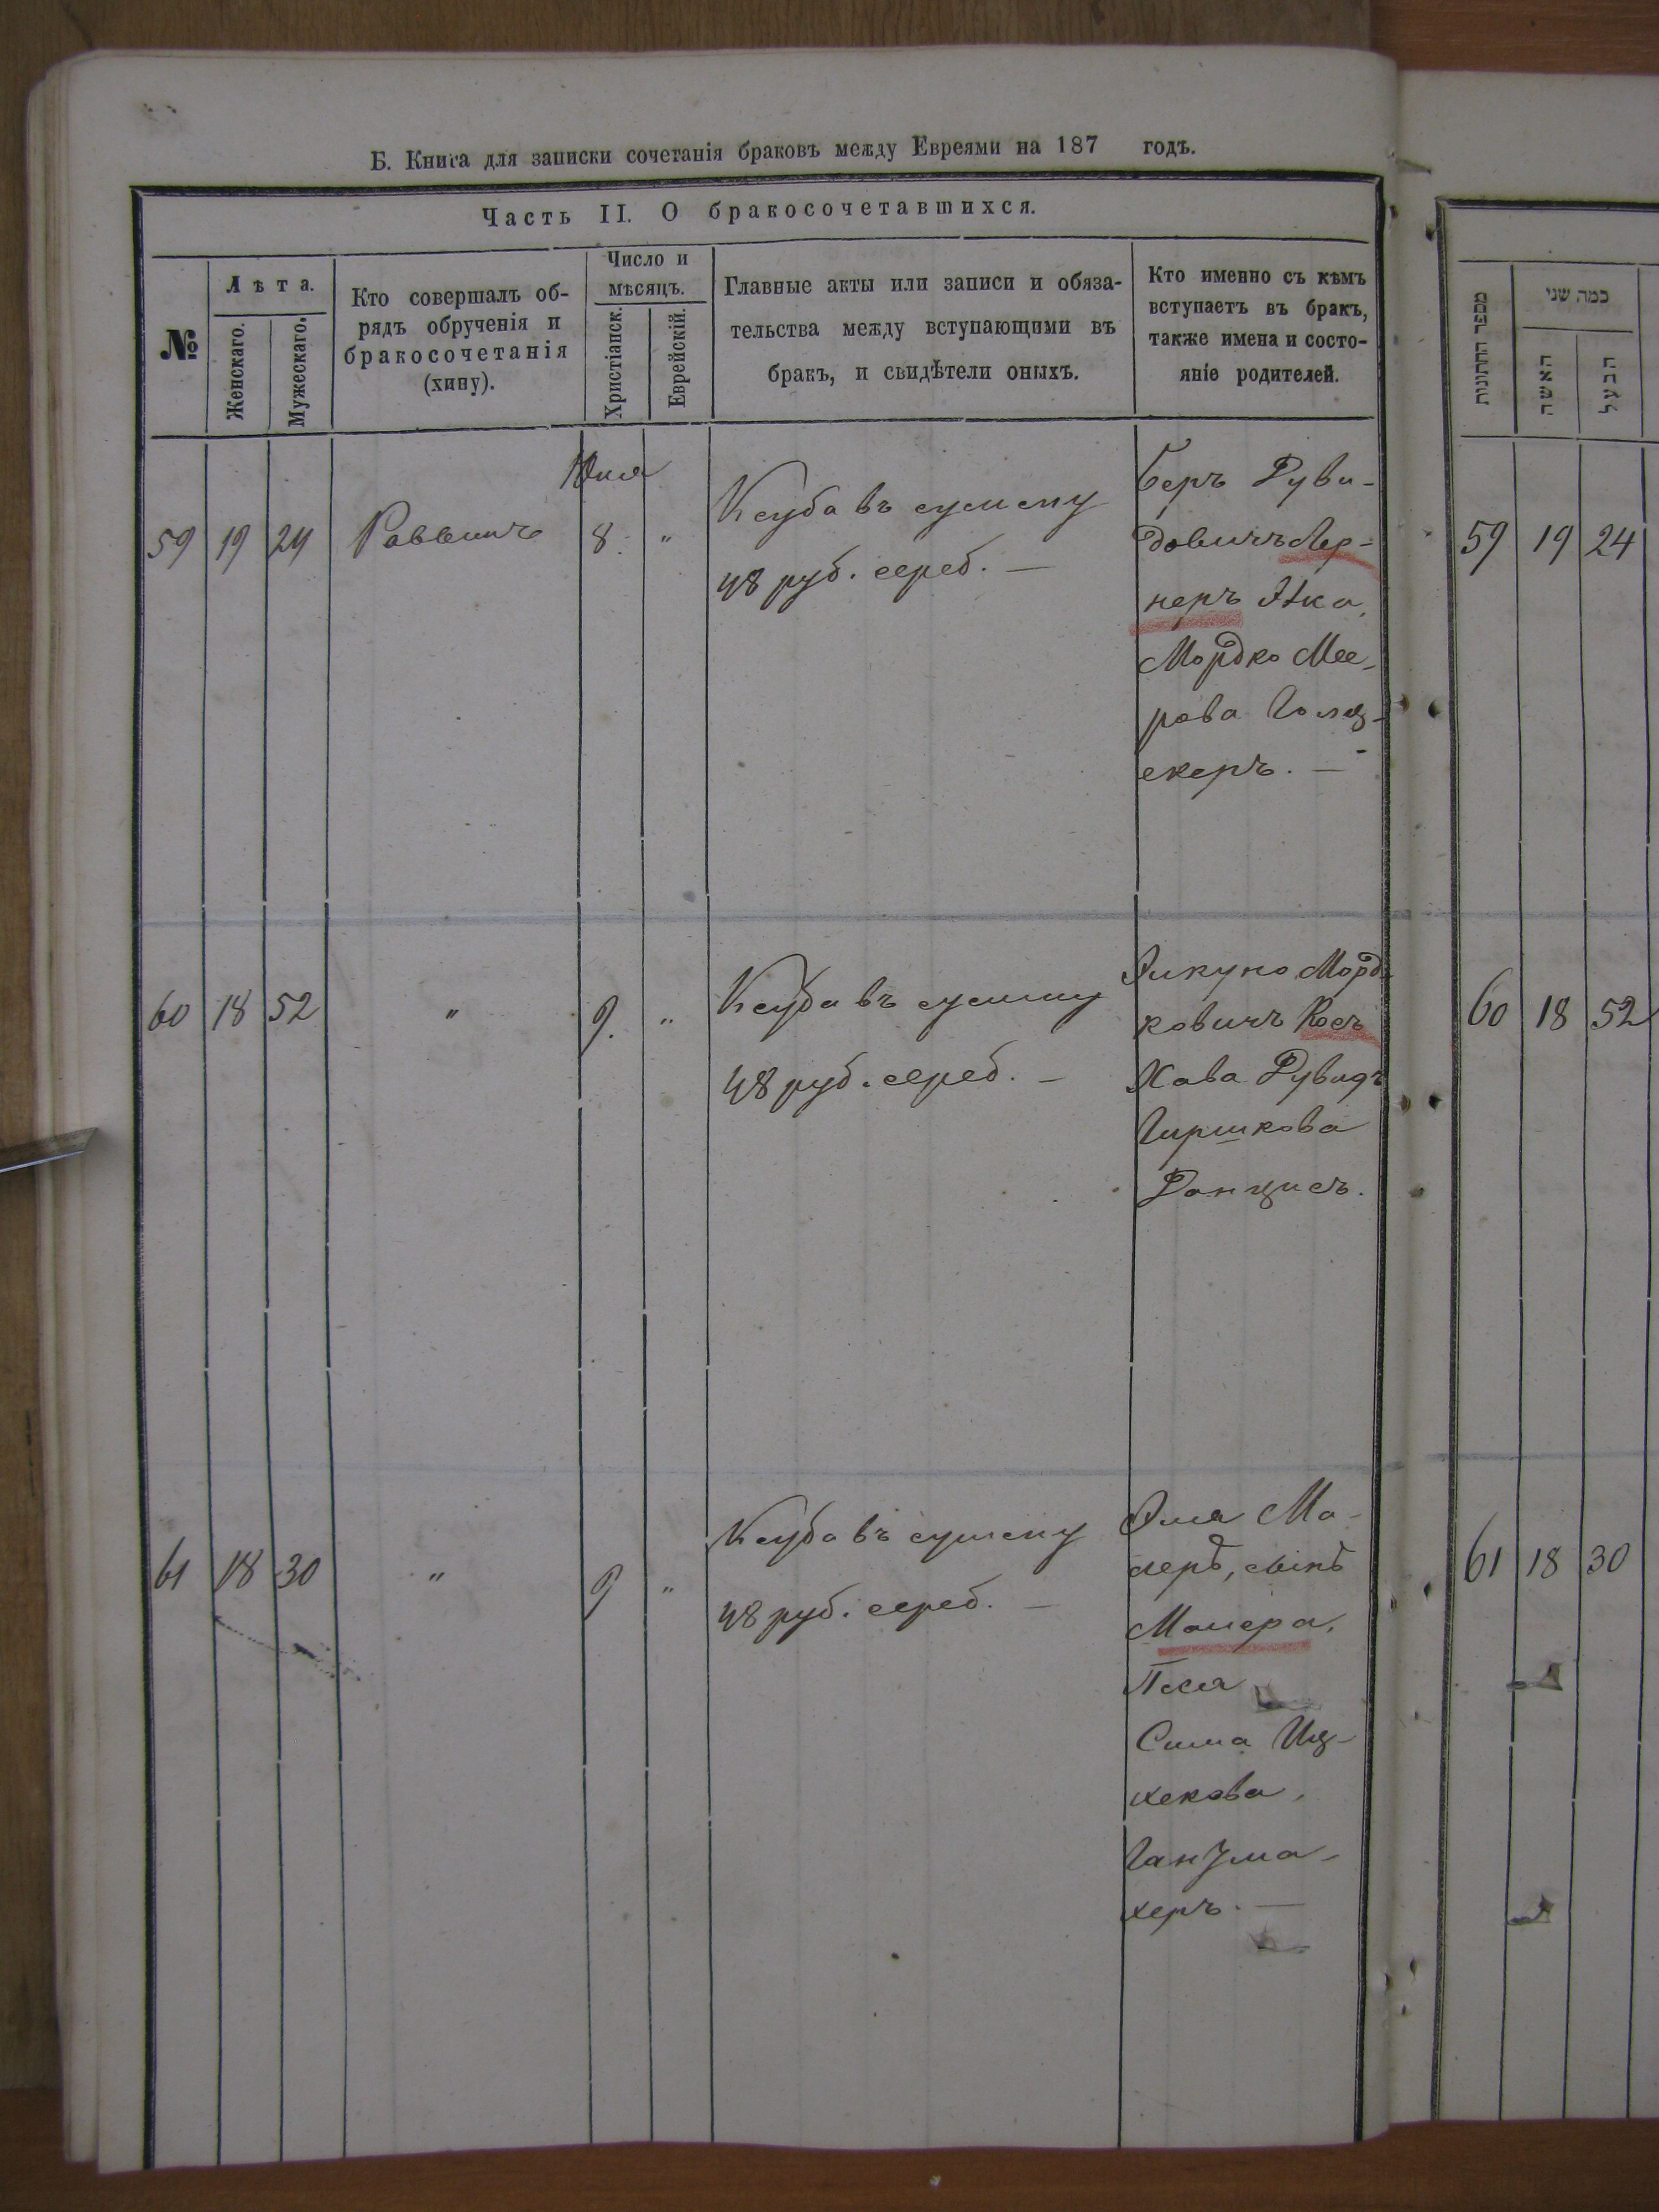 Б. Книга для записки сочетанія браковъ между Евреями на 187 годъ.
Часть II. О бракосочетавшихся.
№
Лѣта.
Женскаго.
Мужескаго.
Кто совершалъ об-
рядъ обрученія и
бракосочетанія
(хипу).
Число и
мѣсяцъ.
Христіанск.
Еврейскій.
Главные акты или записи и обяза-
тельства между вступающими въ
бракъ, и свидѣтели оныхъ.
Кто именно съ кѣмъ
вступаетъ въ бракъ,
также имена и состо-
яніе родителей.
59 19 24 Раввинъ
8. "
Ксуба въ сумму
48 руб. сереб. —
Беръ Руви-
довичъ Лер-
неръ
Мордко Мее-
рова Голц-
екеръ. —
60 18 52 " 9. "
Ксуба въ сумму
48 руб. сереб. —
Морд-
ковичъ Косъ
Хава Рувидъ
Гиршкова
Ранцисъ.
61 18 30 " 9 "
Ксуба въ сумму
48 руб. сереб. —
Эля Ма-
леръ, сынъ
Малера,
Песя
Сима Иц-
хекова,
Ганзма-
херъ. —
מספר החתונות
כמה שני
האשה
הבעל
59 19 24
60 18 52
61 18 30